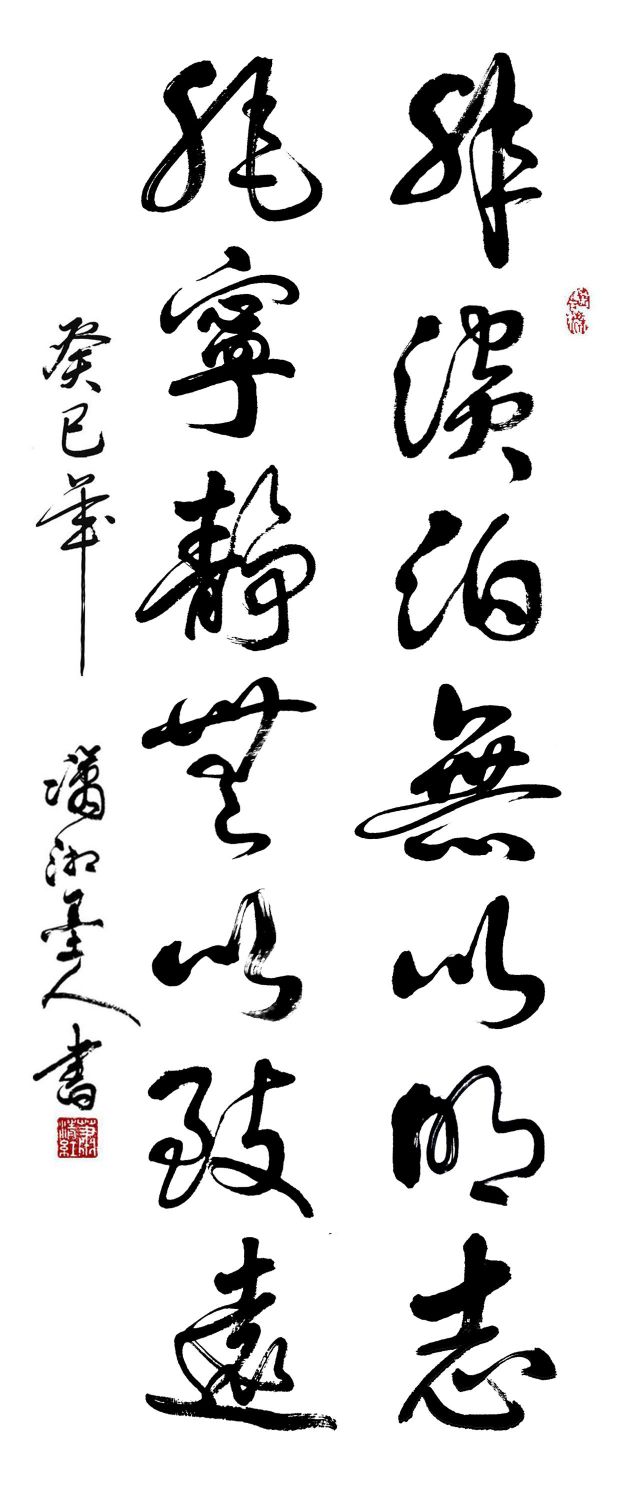 非淡泊無以明志
非寧靜無以致遠
癸巳年 瀟湘墨人書